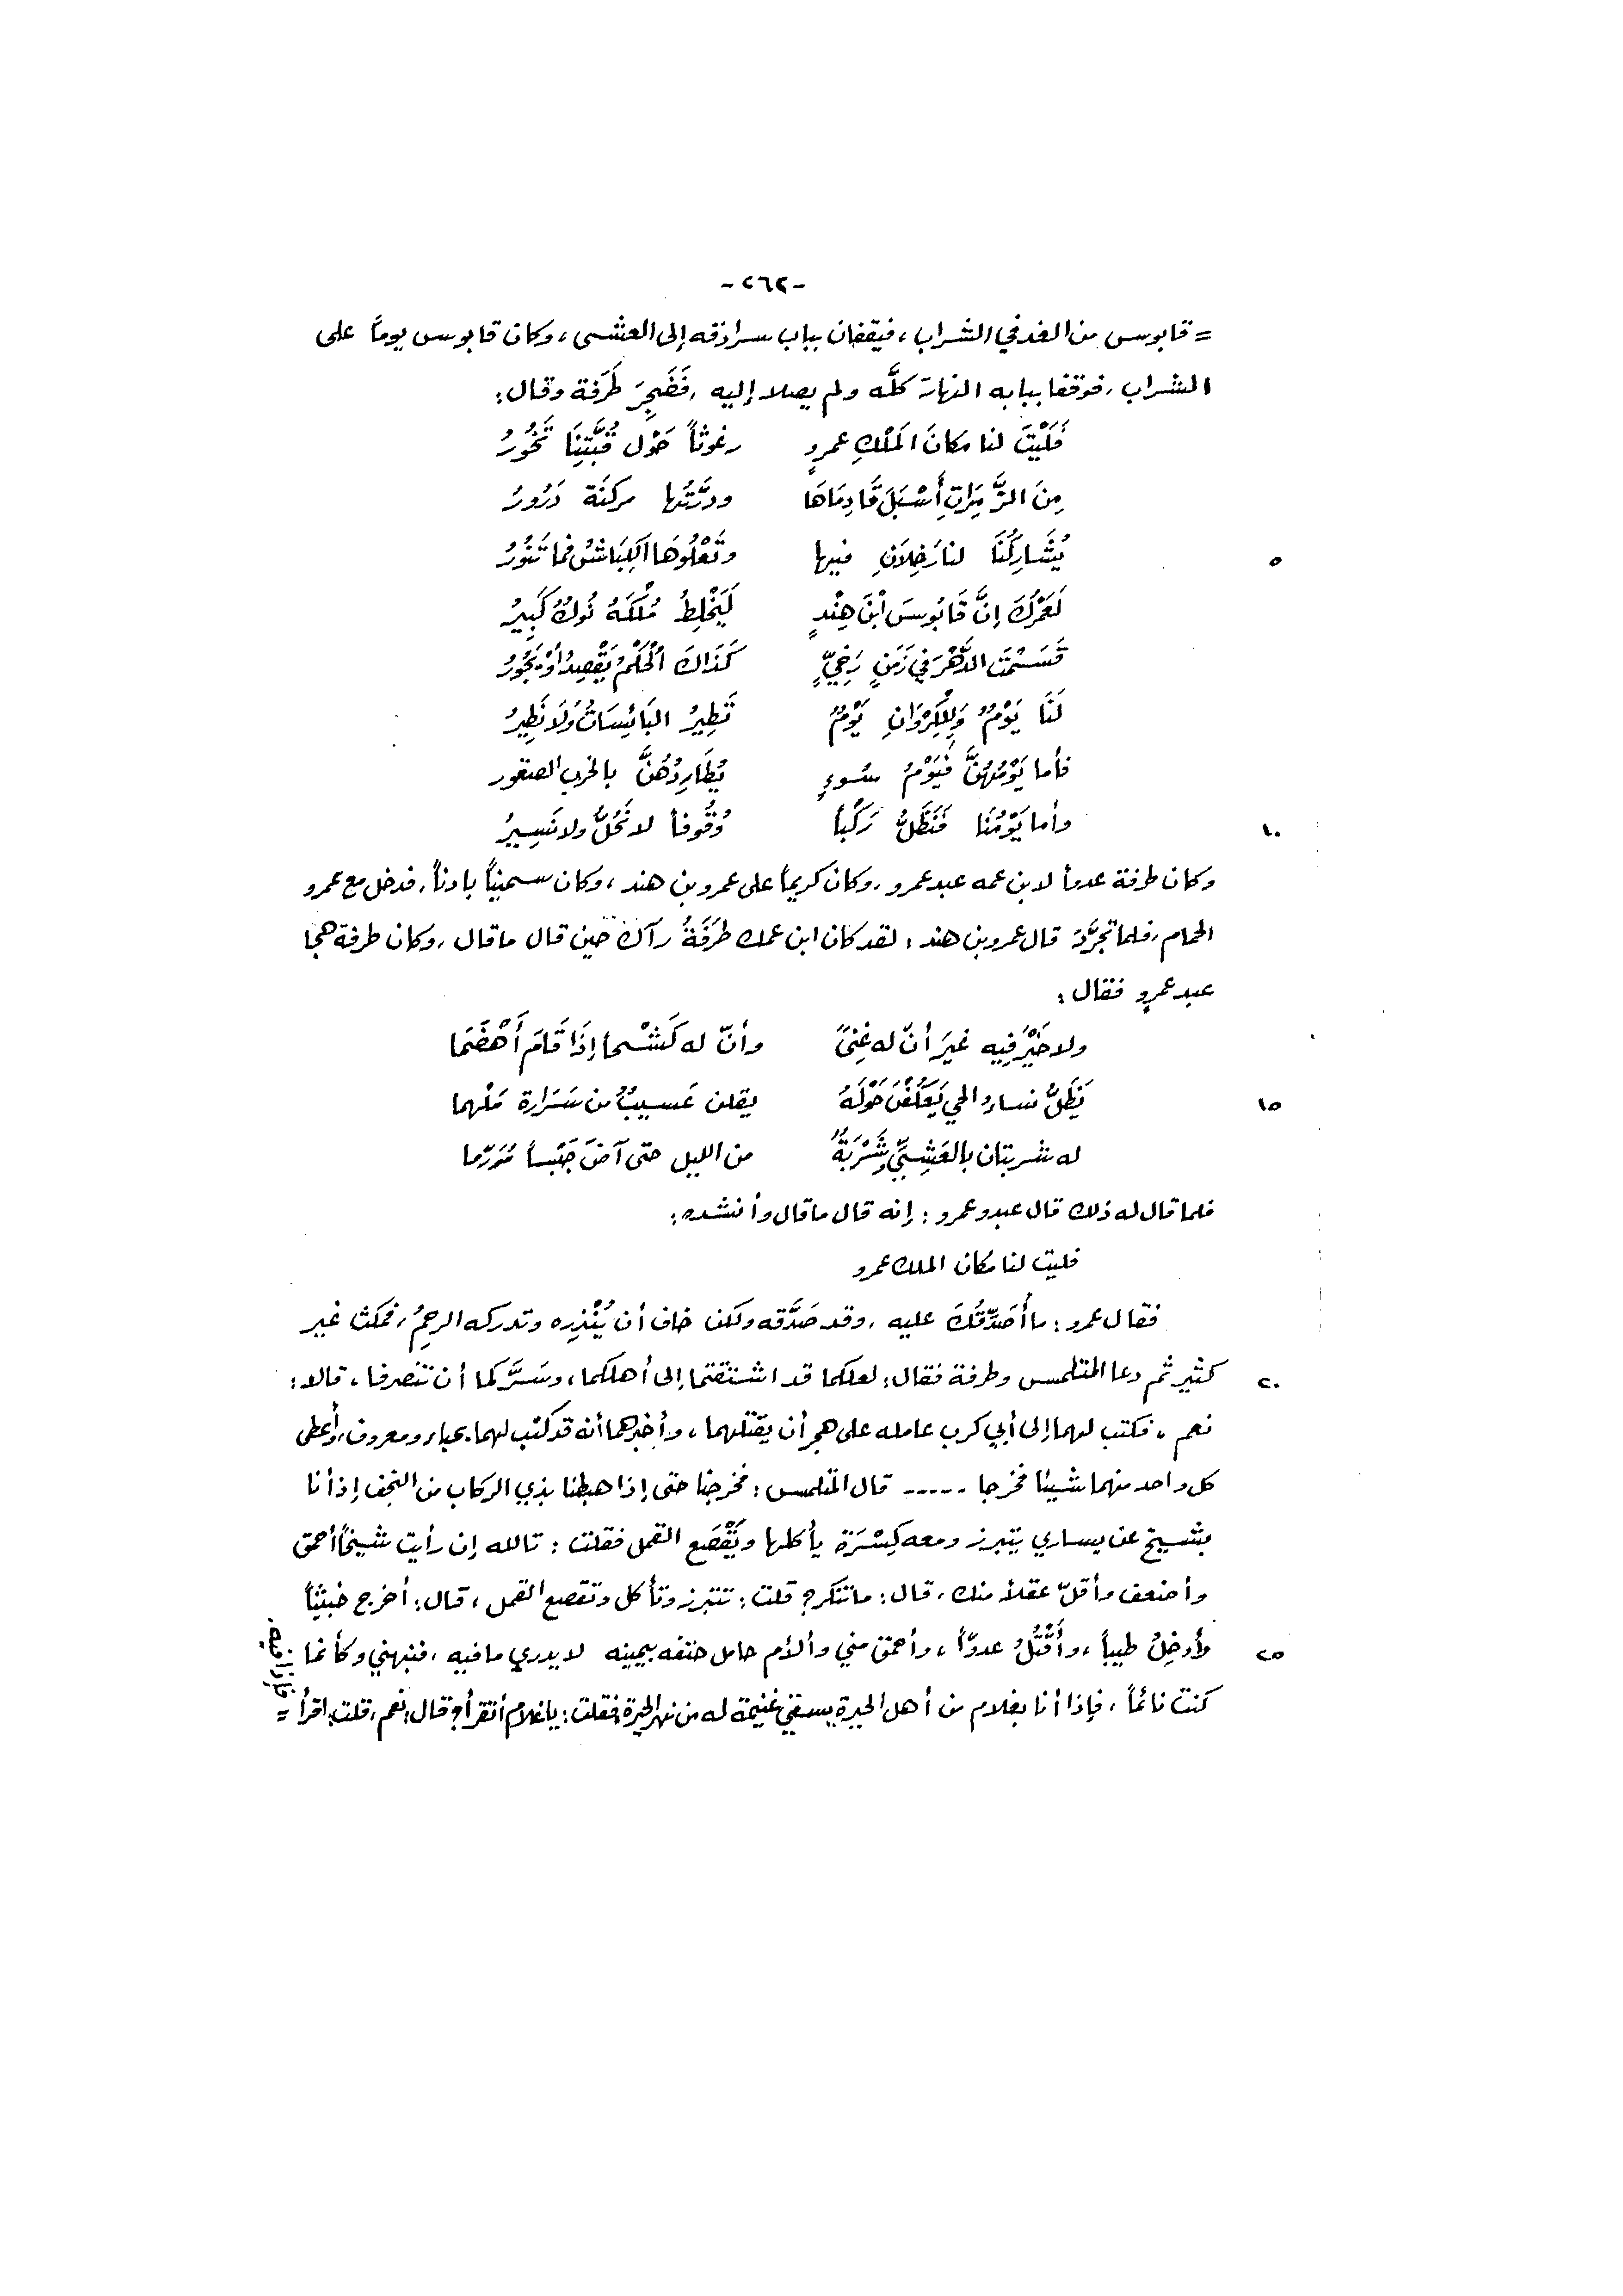 -٢٦٢-
= قابوس من الغد في الشراب، فيقفان بباب سرادقه إلى العشى، وكان قابوس يوماً على
الشراب، فوقفا ببابه النهار كلَّه ولم يصلا إليه، فَضَجِرَ طَرَفة وقال:
فَلَيْتَ لنا مكانَ المَلْكِ عمرٍو رغوثاً حَوْل قُبَّتِنَا تَخُورُ
مِنَ الزَّمِرَاتِ أَسْبَلَ قَادِمَاهَا ودَرَّتُها مركنَة دَرُورُ
يُشَارِكُنَا لنا رَخِلاَنِ فيها وتَعْلُوهَا الكِبَاشُ فما تَنُورُ
٥
لَعَمْرُكَ إنَّ قَابُوسَ ابْنَ هِنْدٍ لَيَخْلِطُ مُلْكَهُ نُوكٌ كَبِيرُ
قَسَمْتَ الدَّهْرَ في زَمَنٍ رَخِيٍّ كَذَاكَ الْحُكْمُ يَقْصِدُ أوْ يَجُورُ
لَنَا يَوْمٌ وَلِلْكِرْوَانِ يَوْمٌ تَطِيرُ البَائِسَاتُ وَلَا نَطِيرُ
فأما يَوْمُهُنَّ فَيَوْمُ سُوءٍ يُطَارِدُهُنَّ بالخرب الصقور
وأما يَوْمُنَا فَنَظَلُّ رَكْباً وُقُوفاً لا نَحُلُّ ولا نَسِيرُ
١٠
وكان طرفة عدواً لابن عمه عبد عمرو، وكان كريماً على عمرو بن هند، وكان سميناً بادناً، فدخل مع عمرو
الحمام، فلما تجرَّدَ قال عمرو بن هند: لقد كان ابن عمك طَرَفَةُ رآك حين قال ما قال، وكان طرفة هجا
عبد عمرٍو فقال:
ولا خَيْرَ فِيه غيرَ أنّ له غِنًى وأنّ له كَشْحاً إذَا قَامَ أَهْضَمَا
يَظَلُّ نساء الحي يَعْكُفْنَ حَوْلَهُ يقلن عَسيبٌ من سَرَارة مَلْهما
١٥
له شربتان بالعَشِيِّ وشَرْبَةٌ من الليل حتى آضَ جَبْساً مُوَرّما
فلما قال له ذلك قال عبد عمرو: إنه قال ما قال وأنشده:
فليت لنا مكان الملك عمرو
فقال عمرو: ما أُصَدِّقُكَ عليه، وقد صَدَّقه ولكن خاف أن يُنْذِره وتدركه الرحِمُ، فمكث غير
كثير ثم دعا المتلمس وطرفة فقال: لعلكما قد اشتقتما إلى أهلكما، وسَرَّكما أن تنصرفا، قالا:
٢٠
نعم، فكتب لهما إلى أبي كرب عامله على هجر أن يقتلهما، وأخبرهما أنه قد كتب لهما بحباء ومعروف، وأعطى
كل واحد منهما شيئاً فخرجا ----- قال المتلمس: فخرجنا حتى إذا هبطنا بذي الركاب من النجف إذ أنا
بشيخ عن يساري يتبرز ومعه كِسْرَة يأكلها ويَقْصَع القمل فقلت: تالله إن رأيت شيخاً أحمق
وأضعف وأقلّ عقلاً منك، قال: ما تنكر؟ قلت: تتبرز وتأكل وتقصع القمل، قال: أخرج خبيثاً
وأُدخِلُ طيباً، وأُقَتِّلُ عدوّاً، وأحمق مني وألأم حامل حتفه بيمينه لا يدري ما فيه، فنبهني وكأنما
٢٥
كنت نائماً، فإذا أنا بغلام من أهل الحيرة يسقي غنيمة له من نهر الحيرة، فقلت: يا غلام أتقرأ؟ قال: نعم، قلت: اقرأ =